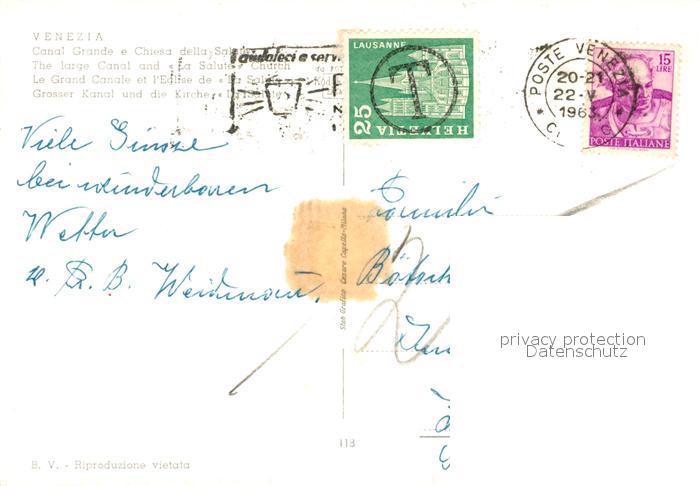 VENEZIA
Canal Grande e Chiesa della Salute
The large Canal and «La Salute» Church
Le Grand Canale et l'Eglise de «La Salute»
Grosser Kanal und die Kirche «La Salute»
LAUSANNE
25
HELVETIA
T
POSTE VENEZIA
20-21
22-V
1963
15
LIRE
POSTE ITALIANE
Viele Grüsse
bei wunderbarem
Wetter
B. Weidmann.
Familie
Stab Grafico Cesare Capello-Milano
privacy protection
Datenschutz
118
B. V. - Riproduzione vietata